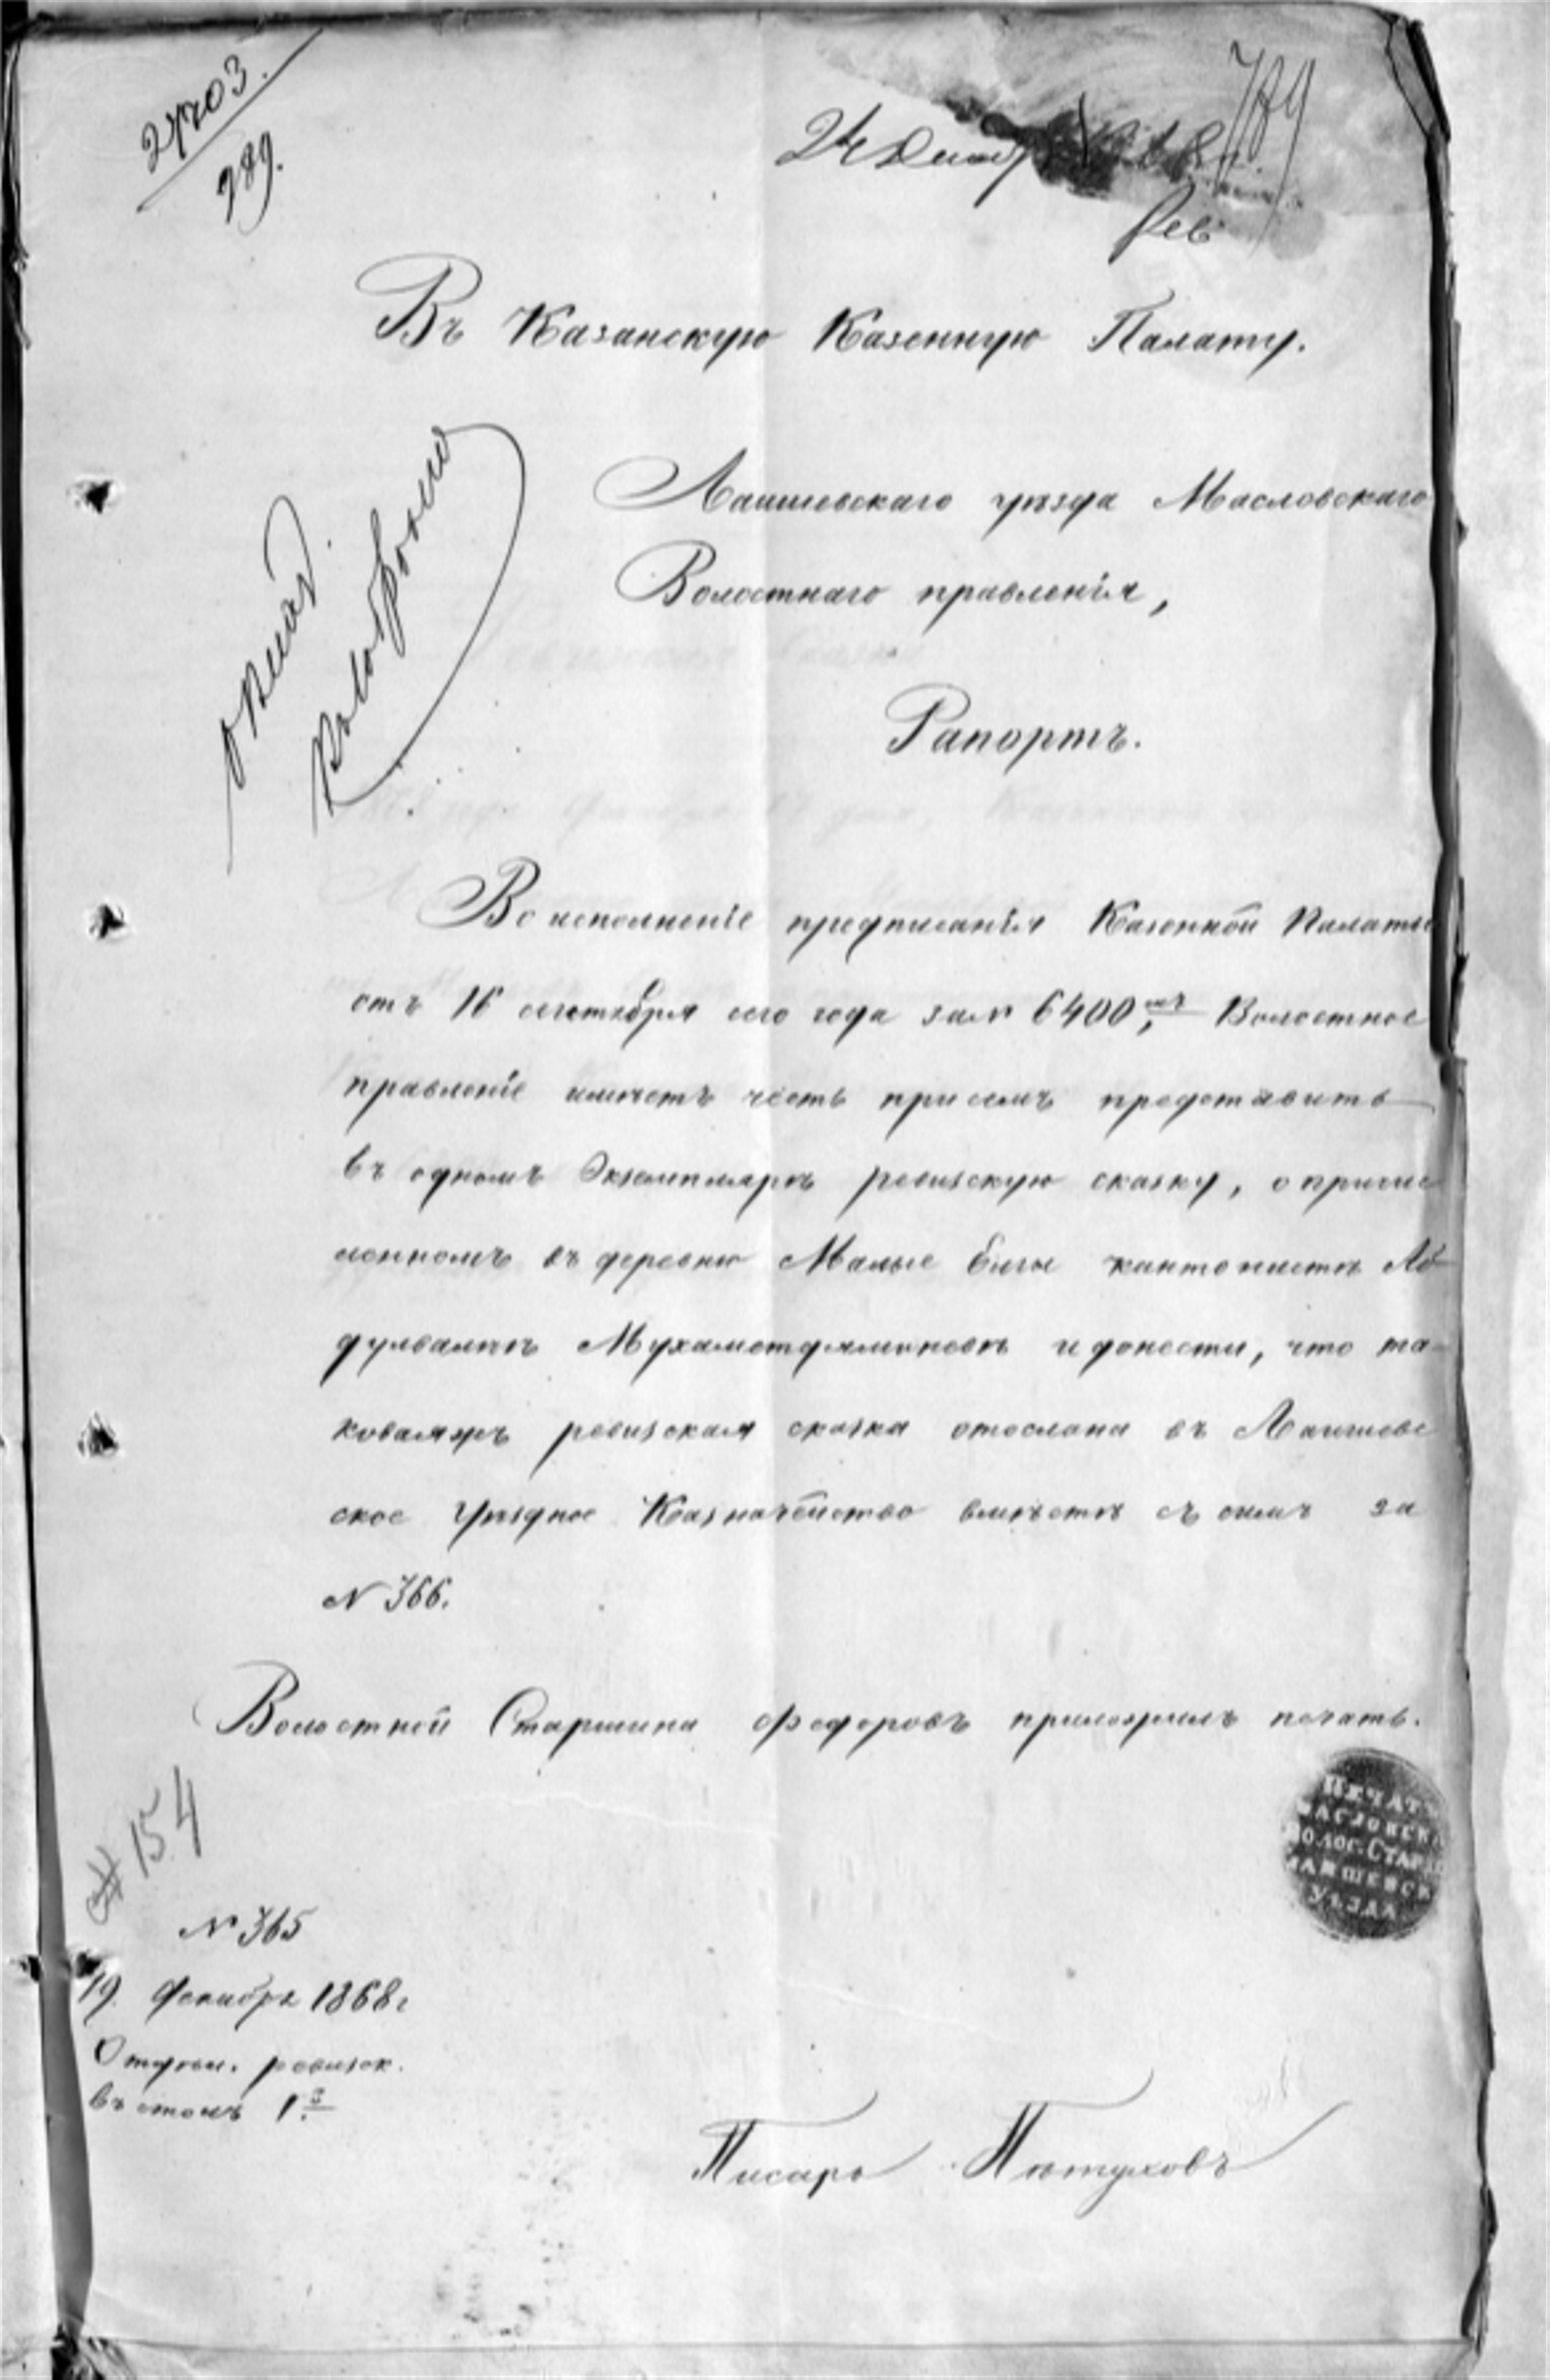 27703.
789.
789
24 Декабр
Рев
Въ Казанскую Казенную Палату.
Лаишевскаго уѣзда Масловскаго
Волостнаго правленія,
Рапортъ.
Во исполненіе предписанія Казенной Палаты
отъ 16 сентября сего года за № 6400, Волостное
правленіе имѣетъ честь при семъ представить
въ одномъ Экземплярѣ ревизскую сказку, о причис
ленномъ въ деревню Малые Елги кантонистѣ Аб
дулвалѣѣ Мухаметдяминовѣ и донести, что та-
коваяжъ ревизская сказка отослана въ Лаишевс
ское Уѣздное Казначейство вмѣстѣ съ симъ за
№ 366.
Волостной Старшина Федоровъ приложилъ печать.
ПЕЧАТ
МАСЛОВСК
ВОЛОС. СТАРШ
ЛАИШЕВСК
УѢЗДА
154
№ 365
19 декабря 1868 г
въ столъ 1
Писарь Пѣтуховъ